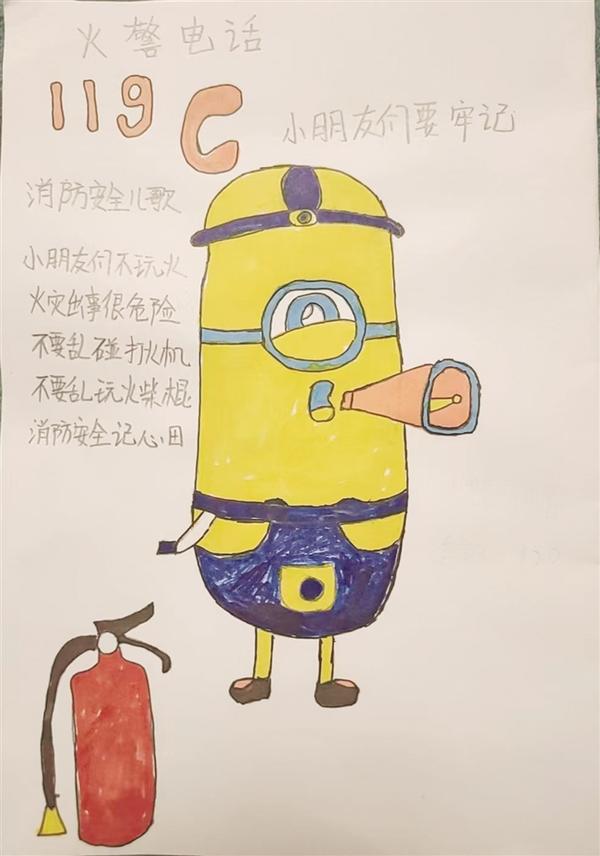 火警电话
119
小朋友们要牢记
消防安全儿歌
小朋友们不玩火
火灾出事很危险
不要乱碰打火机
不要乱玩火柴棍
消防安全记心田